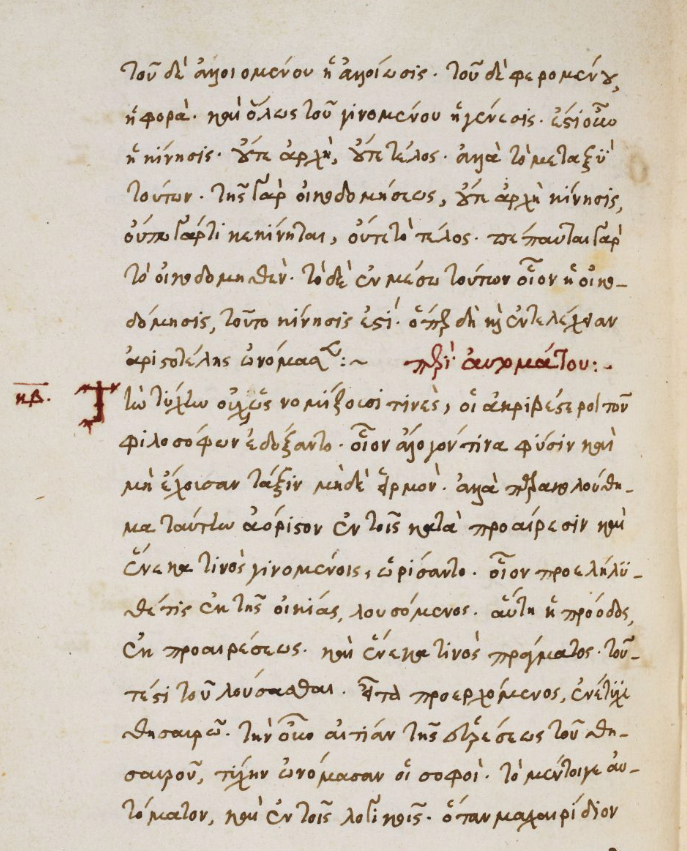 τοῦ δὲ ἀλλοιομένου ἡ ἀλλοίωσις· τοῦ δὲ φερομένου,
ἡ φορά· καὶ ὅλως τοῦ γινομένου ἡ γένεσις· ἔστι οὖν
ἡ κίνησις· οὔτε ἀρχὴ, οὔτε τέλος· ἀλλὰ τὸ μεταξὺ
τούτων· τῆς γὰρ οἰκοδομήσεως, οὔτε ἀρχὴ κίνησις,
οὔπω γάρ τι κεκίνηται, οὔτε τὸ τέλος· πέπαυται γὰρ
τὸ οἰκοδομηθέν· τὸ δὲ ἐν μέσω τούτων οἷον ἡ οἰκο-
δόμησις, τοῦτο κίνησις ἐστί· ὅπερ δὴ καὶ ἐντελέχειαν
ἀριστοτέλης ὠνόμασεν :~ περὶ αὐτομάτου :-
κβ. Τὴν τύχην οὐχ ὡς νομίζουσί τινες, οἱ ἀκριβέστεροι τῶν
φιλοσόφων ἐδόξαντο· οἷον ἄλογόν τινα φύσιν καὶ
μὴ ἔχουσαν τάξιν μηδὲ εἱρμόν· ἀλλὰ παρακολούθη-
μα ταύτην ἀόριστον ἐν τοῖς κατὰ προαίρεσιν καὶ
ἕνεκα τινὸς γινομένοις, ὡρίσαντο· οἷον προελήλυ-
θέ τις ἐκ τῆς οἰκίας, λουσόμενος· αὕτη ἡ πρόοδος,
ἐκ προαιρέσεως· καὶ ἕνεκα τινὸς πράγματος· του-
τέστι τοῦ λούσασθαι· εἶτα προερχόμενος, ἐνέτυχε
θησαυρῶ· τὴν οὖν αἰτίαν τῆς εὑρέσεως τοῦ θη-
σαυροῦ, τύχην ὠνόμασαν οἱ σοφοί· τὸ μέντοιγε αὐ-
τόματον, καὶ ἐν τοῖς λογικοῖς· ὅταν μαχαιρίδιον